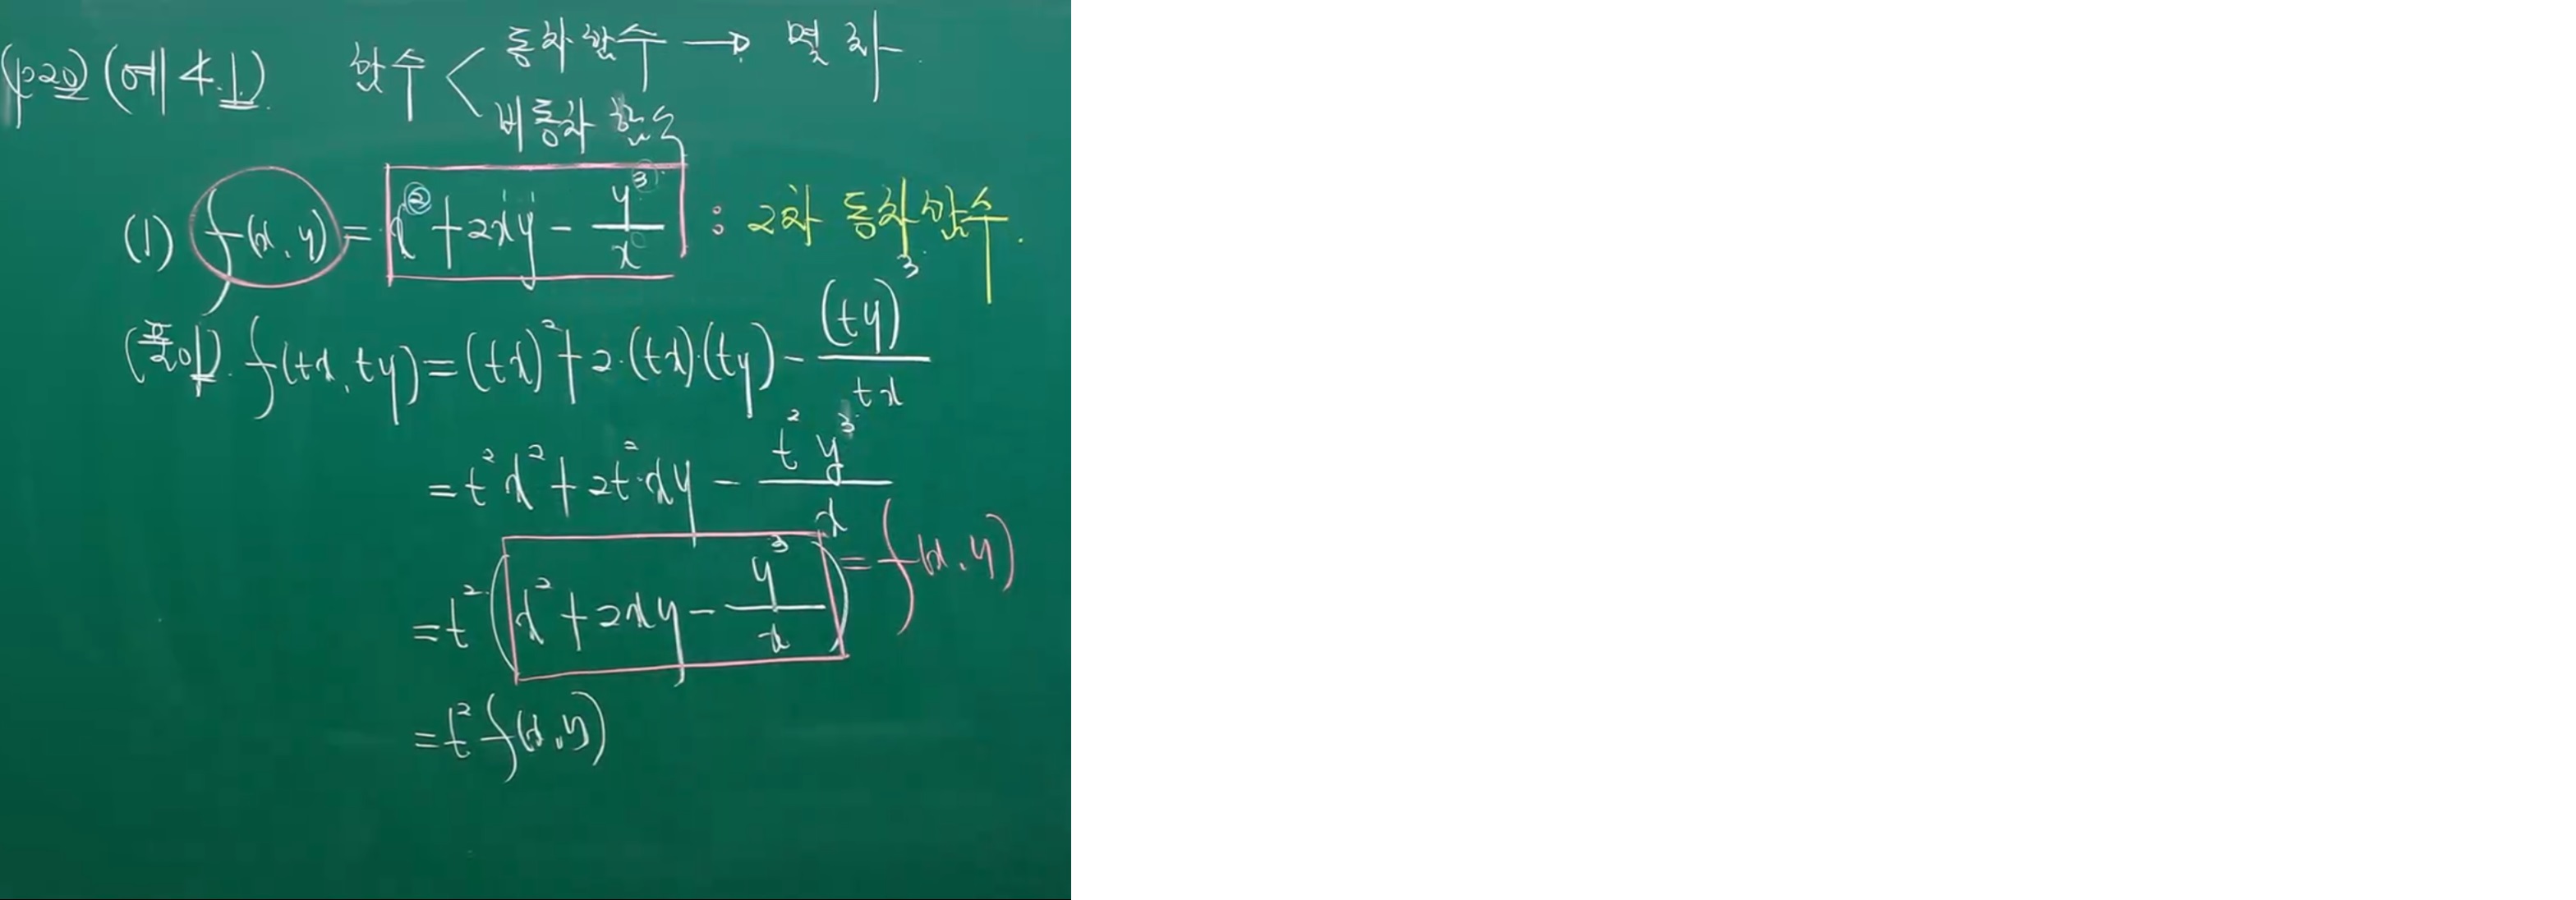 (p20) (예 4.1) 함수 < 동차함수 → 몇 차.
비동차 함수
(1) f(x, y) = x² + 2xy - y³/x : 2차 동차함수.
(풀이). f(tx, ty) = (tx)² + 2·(tx)·(ty) - (ty)³/tx
= t²x² + 2t²·xy - t²y³/x
= t²(x² + 2xy - y³/x) = f(x, y)
= t² f(x, y)